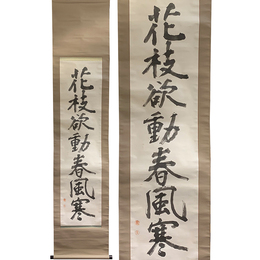 花枝欲動春風寒
花枝欲動春風寒